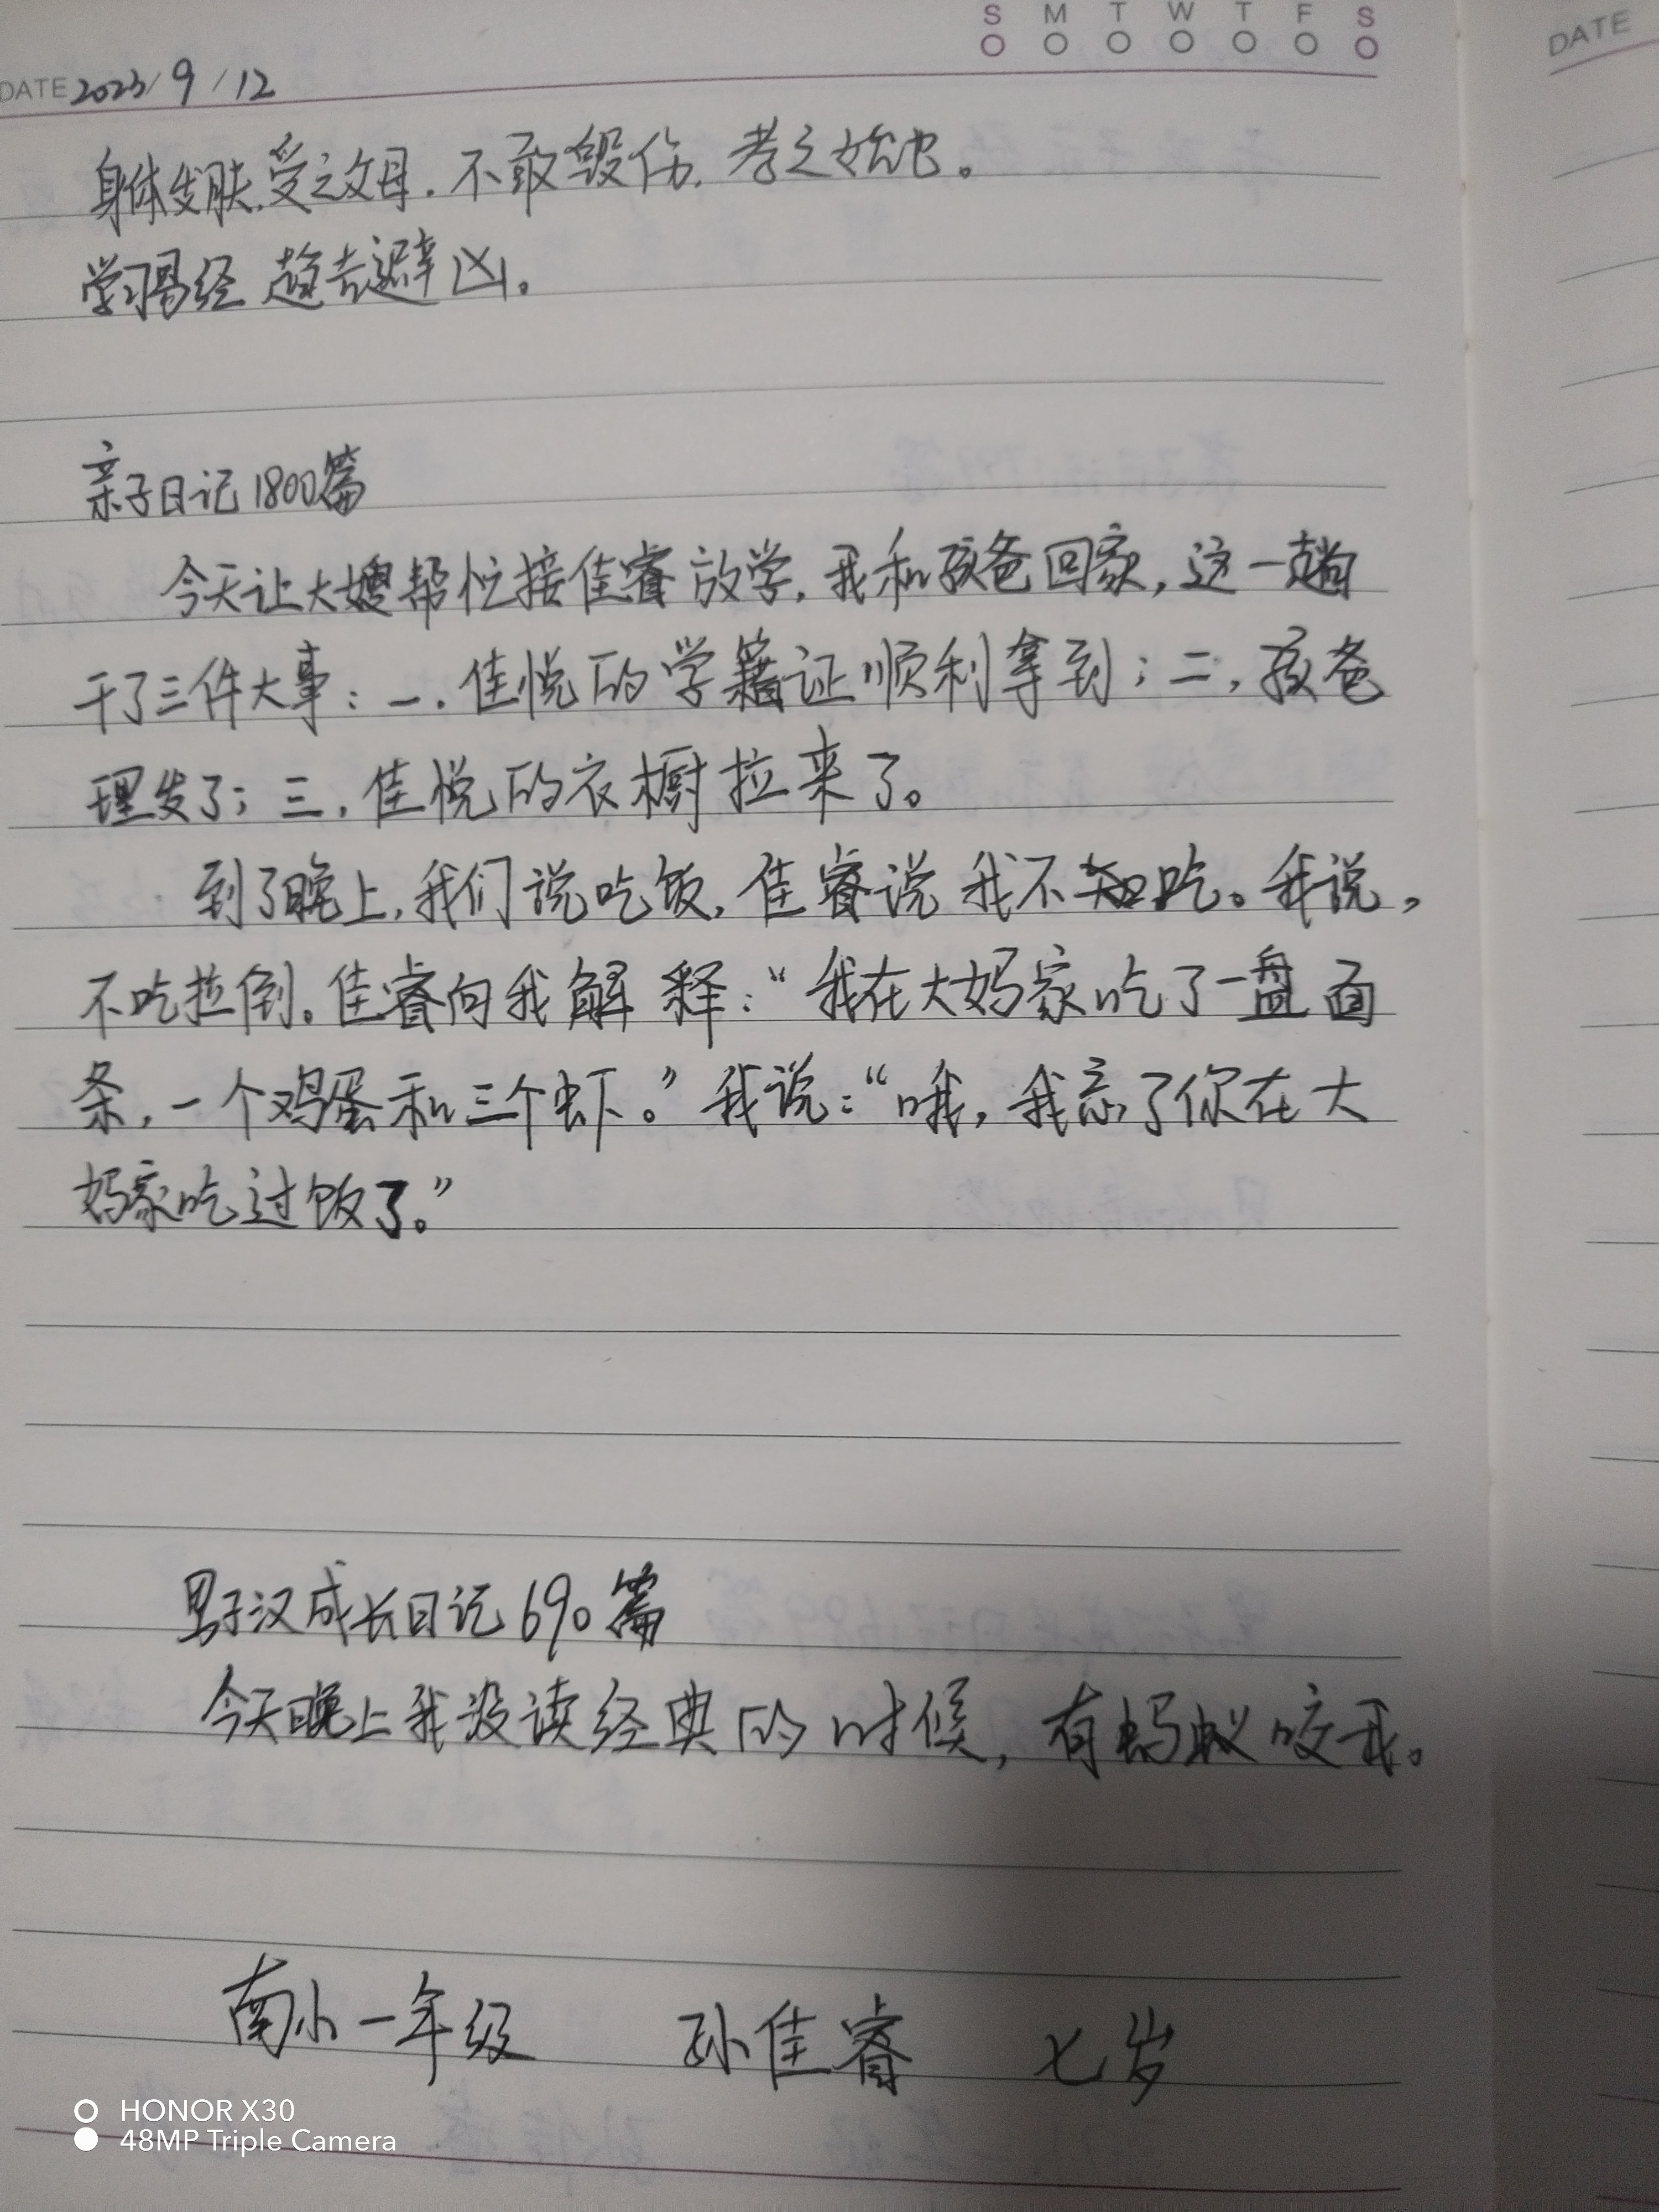 S M T W T F S
DATE 2023/9/12
DATE
身体发肤,受之父母.不敢毁伤,孝之始也。
学习易经 趋吉避凶。
亲子日记1800篇
今天让大嫂帮忙接佳睿放学,我和孩爸回家,这一趟
干了三件大事:一.佳悦的学籍证顺利拿到;二,孩爸
理发了;三,佳悦的衣橱拉来了。
到了晚上,我们说吃饭,佳睿说我不吃。我说,
不吃拉倒。佳睿向我解释:“我在大妈家吃了一盘面
条,一个鸡蛋和三个虾。”我说:“哦,我忘了你在大
妈家吃过饭了。”
男子汉成长日记690篇
今天晚上我没读经典的时候,有蚂蚁咬我。
南小一年级 孙佳睿 七岁
HONOR X30
48MP Triple Camera